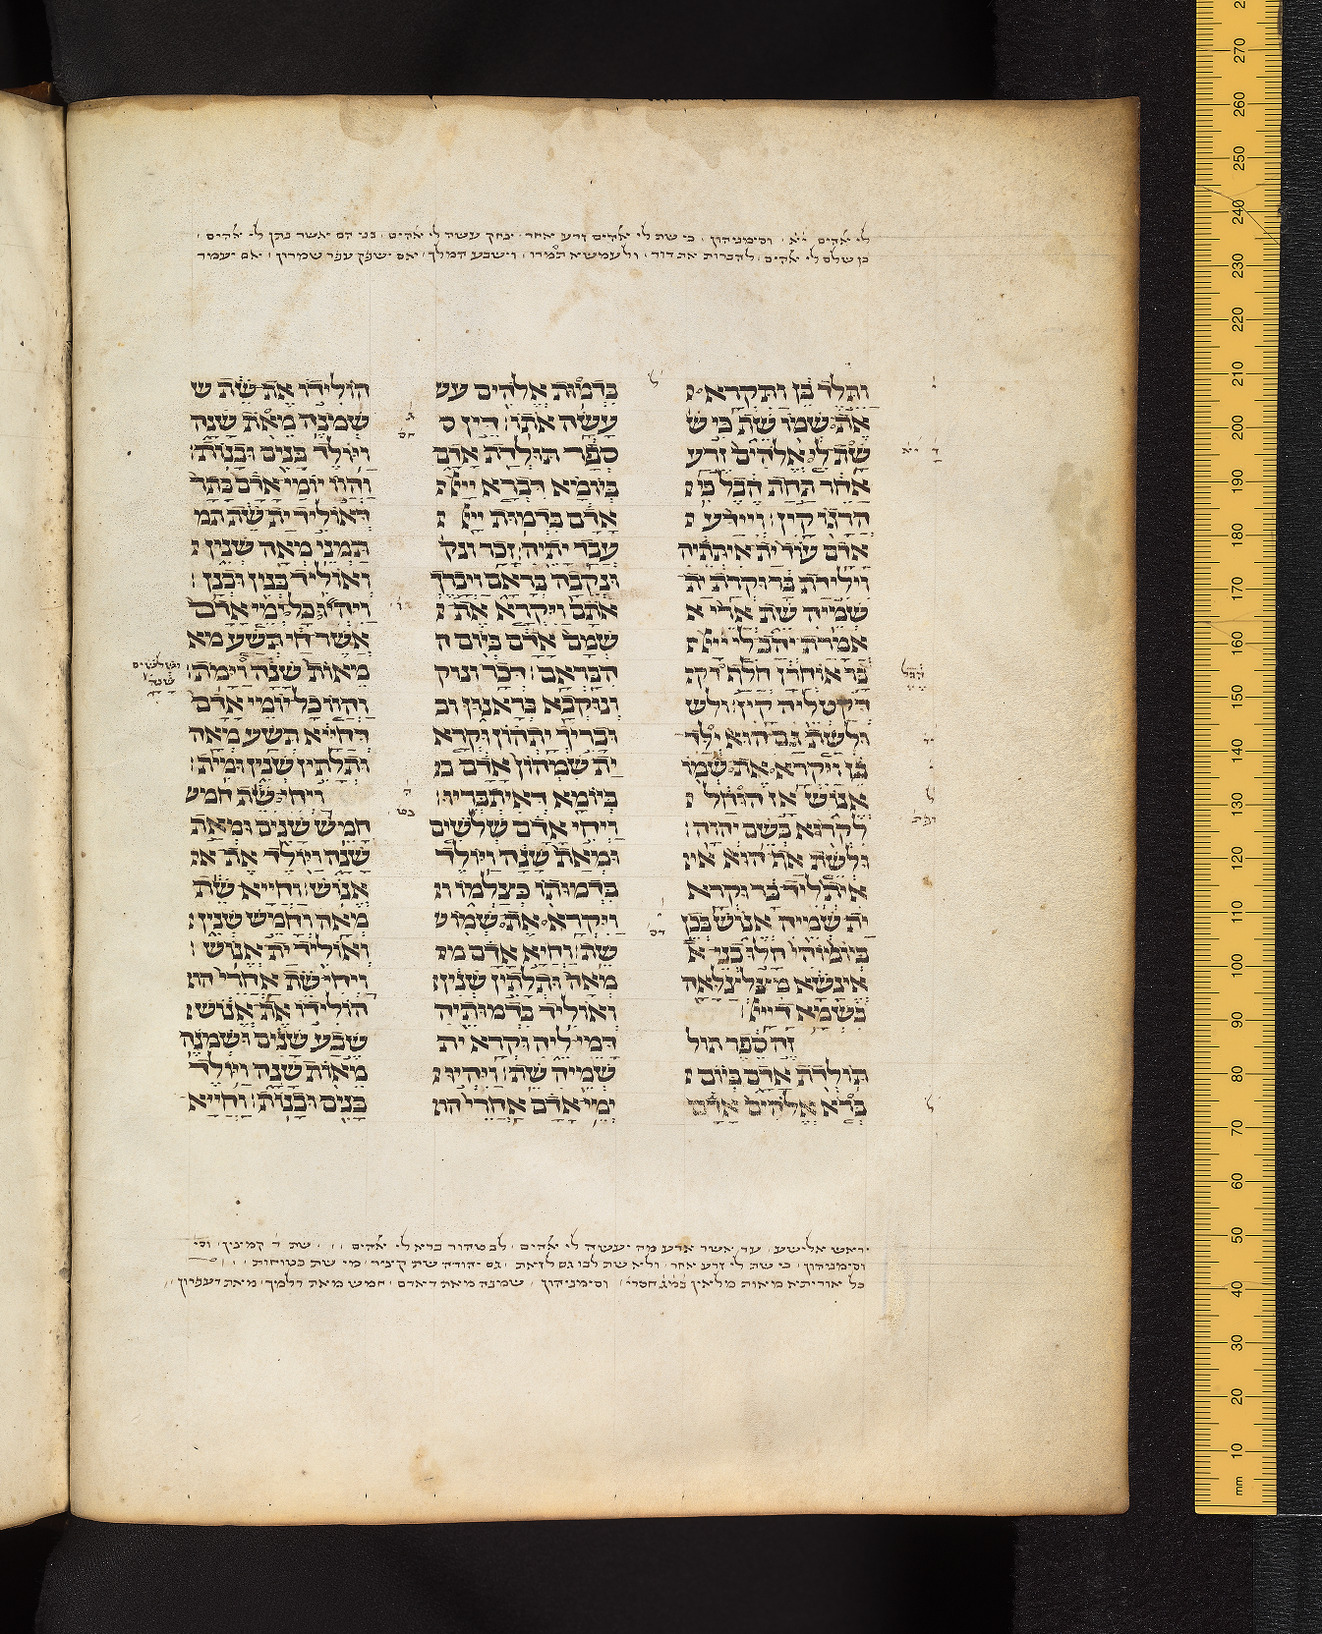 לי אהים יא וסימניהון כי שת לי אהים זרע אחר יצחק עשה לי אהים בני הם אשר נתן לי אהים
כן שלם לי אהים להכרות את דוד ולעמשא תמרו וישבע המלך אם ישפק עפר שמרון אם יעמיד
ותלד בן ותקרא
את שמו שת כי ש
שת לי אלהים זרע
אחר תחת הבל כי
הרגו קין וידע
אדם עוד ית איתתיה
וילידת בר וקרת ית
שמיה שת ארי א
אמרת יהב לי ייי
בר אוחרן חלף
דקטליה קין ולש
ולשת גם הוא ילד
בן ויקרא את שמו
אנוש אז הוחל
לקרוא בשם יהוה
ולשת אף הוא
איתיליד בר וקרא
ית שמיה אנוש בכן
ביומוהי חלו בני א
אינשא מצלצלאה
בשמא דייי
זה ספר תול
תולדת אדם ביום
ברא אלהים אדם
בדמות אלהים עש
עשה אתו דין ס
ספר תולדת אדם
ביומא דברא ייי
אדם בדמות ייי
עבד יתיה זכר ונק
ונקבה בראם ויברך
אתם ויקרא את
שמם אדם ביום ה
הבראם דכר ונוק
ונוקבא בראנון וב
ובריך יתהון וקרא
ית שמהון אדם
ביומא דאיתבריו
ויחי אדם שלשים
ומאת שנה ויולד
בדמותו כצלמו
ויקרא את שמו
שת וחיא אדם
מאה ותלתין שנין
ואוליד בדמותיה
דמי ליה וקרא ית
שמיה שת ויהיו
ימי אדם אחרי
הולידו את שת ש
שמנה מאת שנה
ויולד בנים ובנות
והוו יומי אדם בתר
דאוליד ית שת תמ
תמני מאה שנין
ואוליד בנין ובנן
ויהיו כל ימי אדם
אשר חי תשע מא
מאות שנה וימת
והוו כל יומי אדם
דחייא תשע מאה
ותלתין שנין ומית
ויחי שת חמש
חמש שנים ומאת
שנה ויולד את
אנוש וחייא שת
מאה וחמש שנין
ואוליד ית אנוש
ויחי שת אחרי
הולידו את אנוש
שבע שנים ושמנה
מאות שנה ויולד
בנים ובנות וחייא
ושלשים
שנה
הבל
יא
חס
דס
וראש אלישע עד אשר אדע מה יעשה לי אהים לב טהור ברא לי אהים שת
וסימניהון כי שת לי זרע אחר ולא שת לבו גם לזאת גם יהודה שת קציר מי שת בטוחות
כל אוריתא מאות מלאין חסרי וסימניהון שמנה מאת דאדם חמש מאת דלמך מאת דעפרון